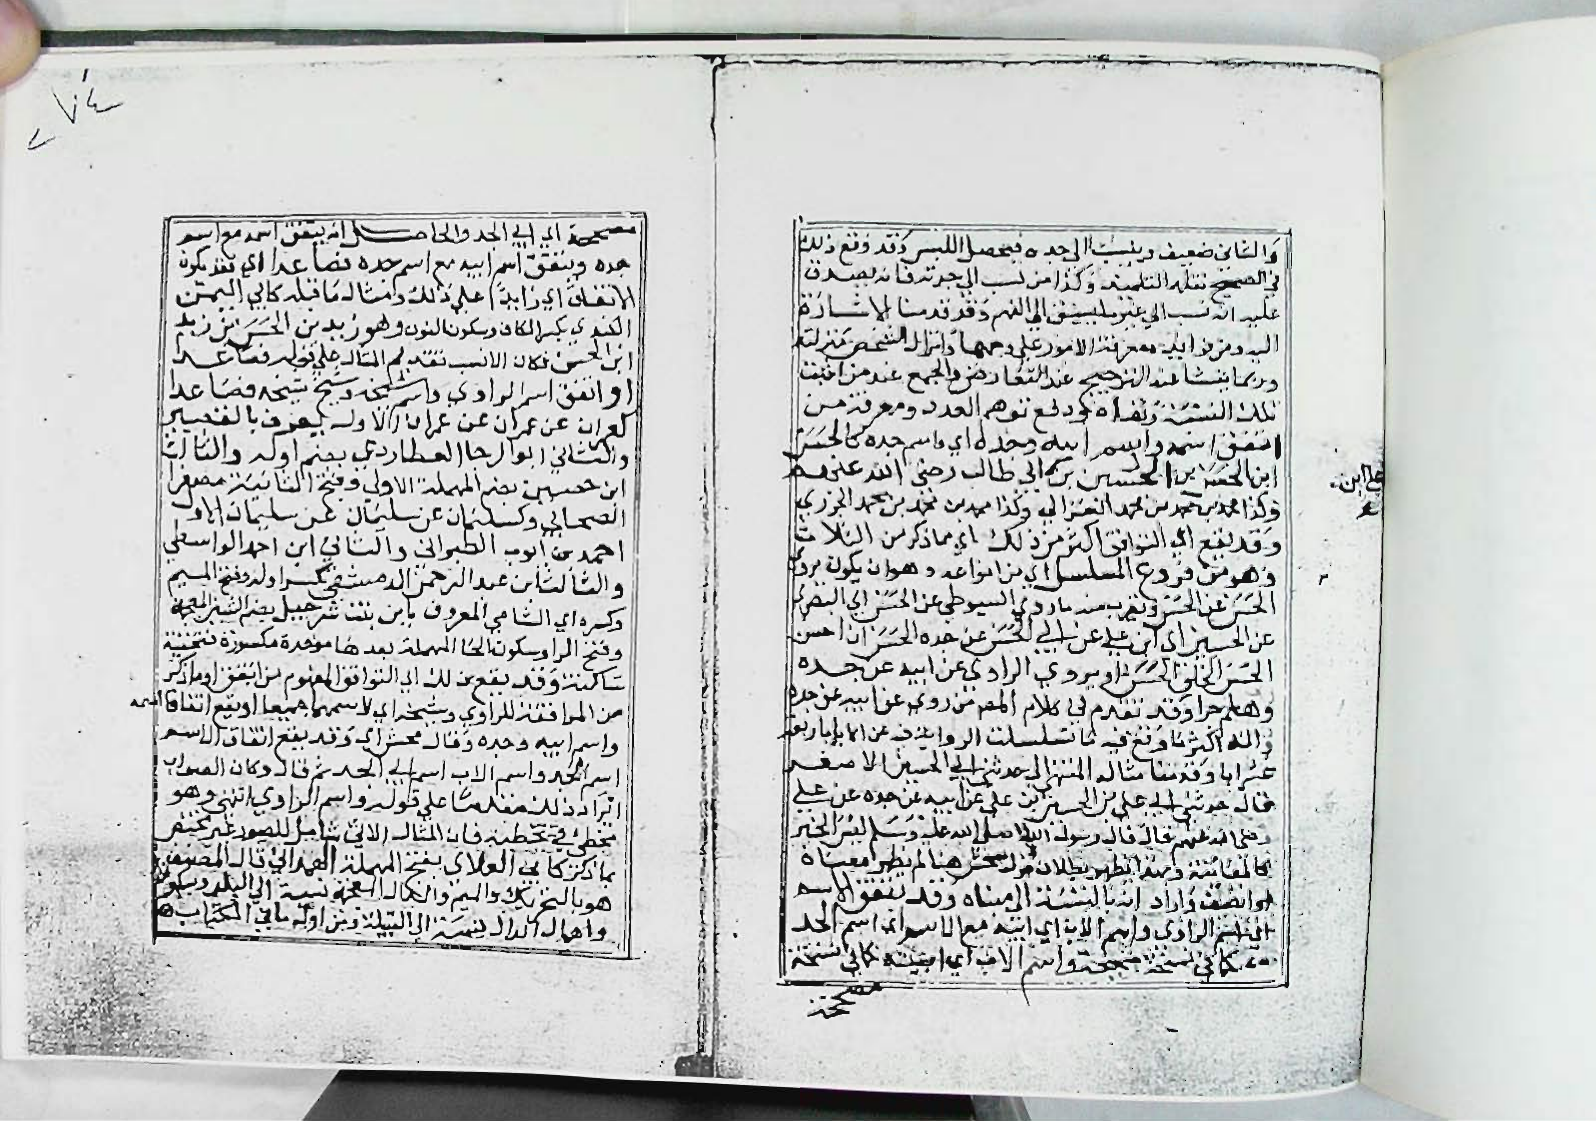 والثاني ضعيف وينسب الى جده فيحصل اللبس وقد وقع ذلك
في الصحيح نقله التلميذ وكذا من نسب الى جدته فانه يصدق
عليه انه نسب الى غير ما يسبق الى الفهم وقد قدمنا الاشارة
اليه ومن فوايده معرفة الامور على وجهها وانزال الشخص منزلته
وربما ينشا عند الترجيح عند التعارض والجمع عند من اثبت
تلك النسبة ونفاه ودفع توهم العدد ومعرفة من
اتفق اسمه واسم ابيه وجده اي واسم جده كالحسن
ابن الحسن بن الحسين بن ابي طالب رضي الله عنهم
وكذا محمد بن محمد بن محمد الغزالي وكذا محمد بن محمد بن محمد الجزري
وقد يقع اي التوافق اكثر من ذلك اي مما ذكر من الثلاث
وهو من فروع المسلسل اي من انواعه وهو ان يكون يروي
الحسن عن الحسن ويقرب منه ما روي السيوطي عن الحسن اي البصري
عن الحسن اي ابن علي عن ابي الحسن عن جده الحسن ان احسن
الحسن الخلق الحسن او يروي الراوي عن ابيه عن جده
وهلم جرا وقد تقدم في كلام المصـ من روي عن ابيه عن جده
وانه اكثر ما وقع فيه ما تسلسلت الرواية فيه عن الابا باربعة
عشر ابا وقدمنا مثاله المنتهي الى حدثني ابي الحسين الاصغر
قال حدثني ابي علي بن الحسين بن علي عن ابيه عن جده عن علي
رضي الله عنهم قال قال رسول الله صلى الله عليه وسلم ليس الخبر
كالمعاينة وبهذا يظهر بطلان قول محش هنا لم يظهر معناه
لو انصف واراد انه بالنسبة الى مبناه وقد يتفق الاسم
اي اسم الراوي واسم الاب اي ابيه مع الاسم اي اسم الجد
كما في نسخة صحيحة واسم الاب اي ابيه كما في نسخة
صحيحة
ابن
صحيحة اي ابي الجد والحاصل انه يتفق اسمه مع اسم
جده ويتفق اسم ابيه مع اسم جده فصاعدا اي فقد يكون
الاتفاق اي زايدا على ذلك ومثاله ما قبله كابي اليمن
الكندي بكسر الكاف وسكون النون وهو زيد بن الحسن بن زيد
ابن الحسن فكان الانسب تقديم المثال على قوله فصاعدا
او اتفق اسم الراوي واسم شيخه وشيخ شيخه فصاعدا
كعمران عن عمران عن عمران الاول يعرف بالقصير
والثاني ابو رجا العطاردي بضم اوله والثالث
ابن حصين بضم المهملة الاولى وفتح الثانية مصغرا
الصحابي وكسليمان عن سليمان عن سليمان الاول
احمد بن ايوب الطبراني والثاني ابن احمد الواسطي
والثالث ابن عبد الرحمن الدمشقي بكسر اوله وفتح الميم
وكسره اي الشامي المعروف بابن بنت شرحبيل بضم الشين المعجمة
وفتح الرا وسكون الحا المهملة بعدها موحدة مكسورة فتحتية
ساكنة وقد يقع ذلك اي التوافق المفهوم من اتفق او ما ذكر
من الموافقة للراوي وشيخه اي لاسمهما جميعا او يقع اتفاقا
واسم ابيه وجده وقال محش اي وقد يقع اتفاق الاسم
اسم الجد واسم الاب اسم ابي الجد ثم قال وكان الصواب
ايراد ذلك مقدما على قوله واسم الراوي انتهى وهو
مخطئ في تخطئته فان المثال الاتي شامل للصور غير مختص
بما ذكر كابي العلاي بفتح المهملة الهمداني قال المصنف
هو بالتحريك والميم والذال المعجمة نسبة الى البلد وبسكون
واهمال الدال نسبة الى القبيلة ومن اوله ما في الكتاب